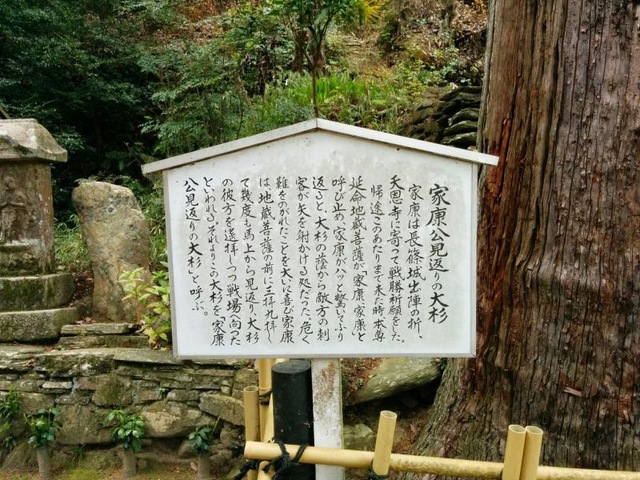 家康公見返りの大杉
家康は長篠城出陣の折、
天恩寺に寄って戦勝祈願をした
帰途このあたりまで来た時本尊
延命地蔵菩薩が「家康、家康」と
呼び止め、家康が「ハッ」と驚いてふり
返ると、大杉の蔭から敵方の刺
客が矢を射かける処だった。危く
難をのがれたことを大いに喜び家康
は地蔵菩薩の前に三拝九拝し
て幾度も馬上から見返り、大杉
の彼方を遥拝しつつ戦場へ向った
といわれる。それよりこの大杉を「家康
公見返りの大杉」と呼ぶ。